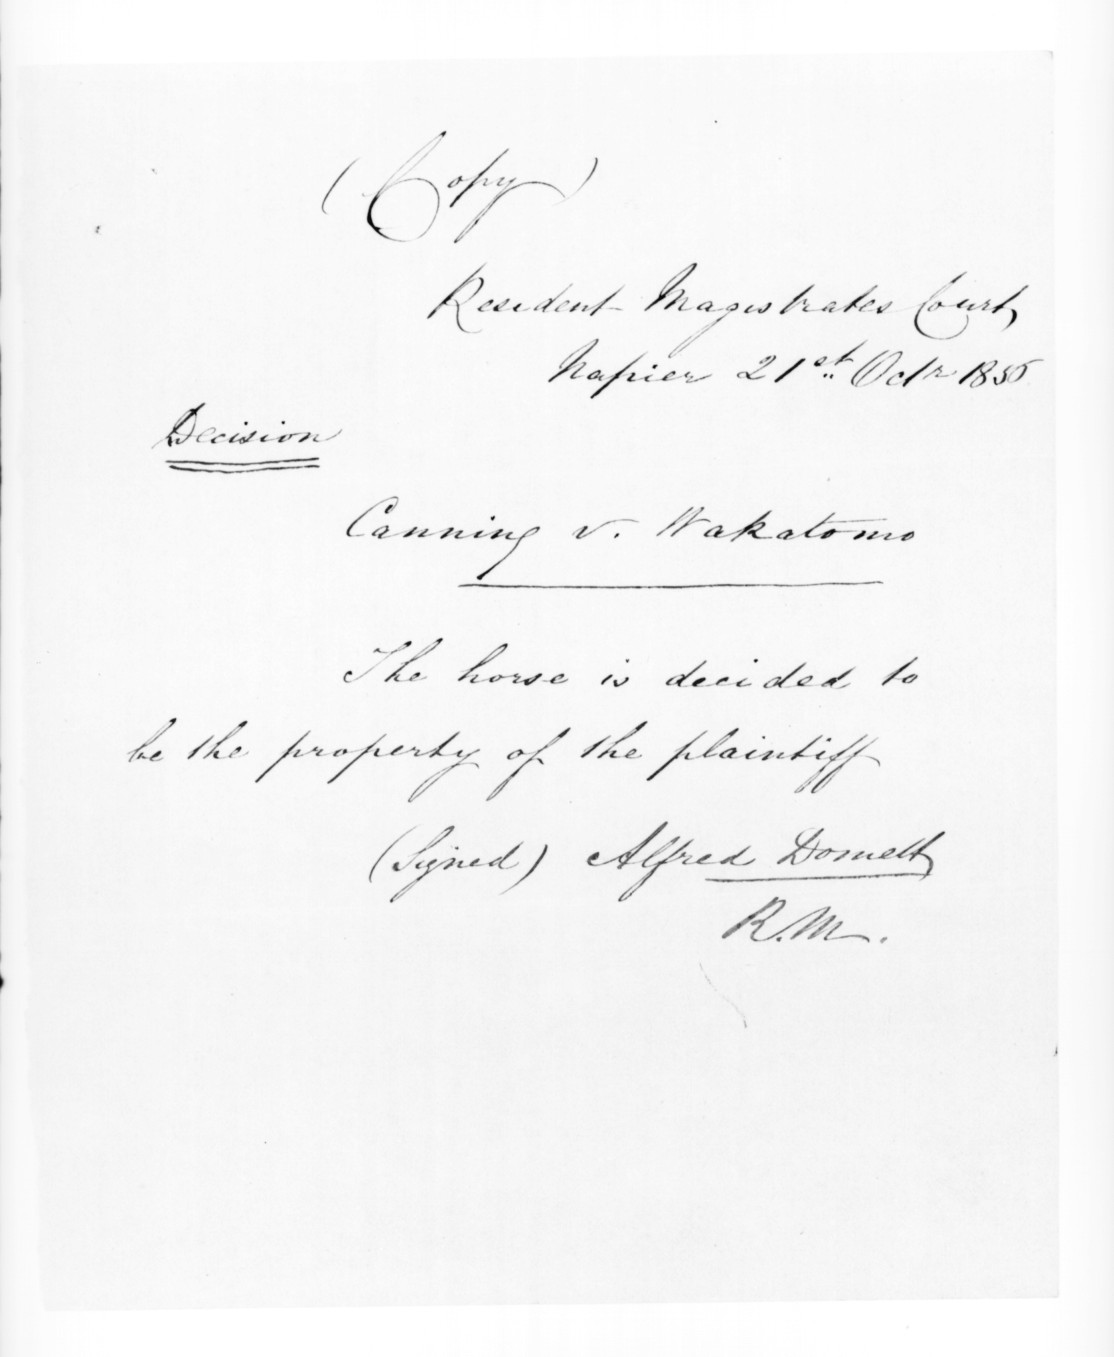 (Copy)
Resident Magistrates Court,
Napier 21st Octr 1856
Decision
Canning v. Wakatomo
The horse is decided to
be the property of the plaintiff
(Signed) Alfred Domett
R.M.